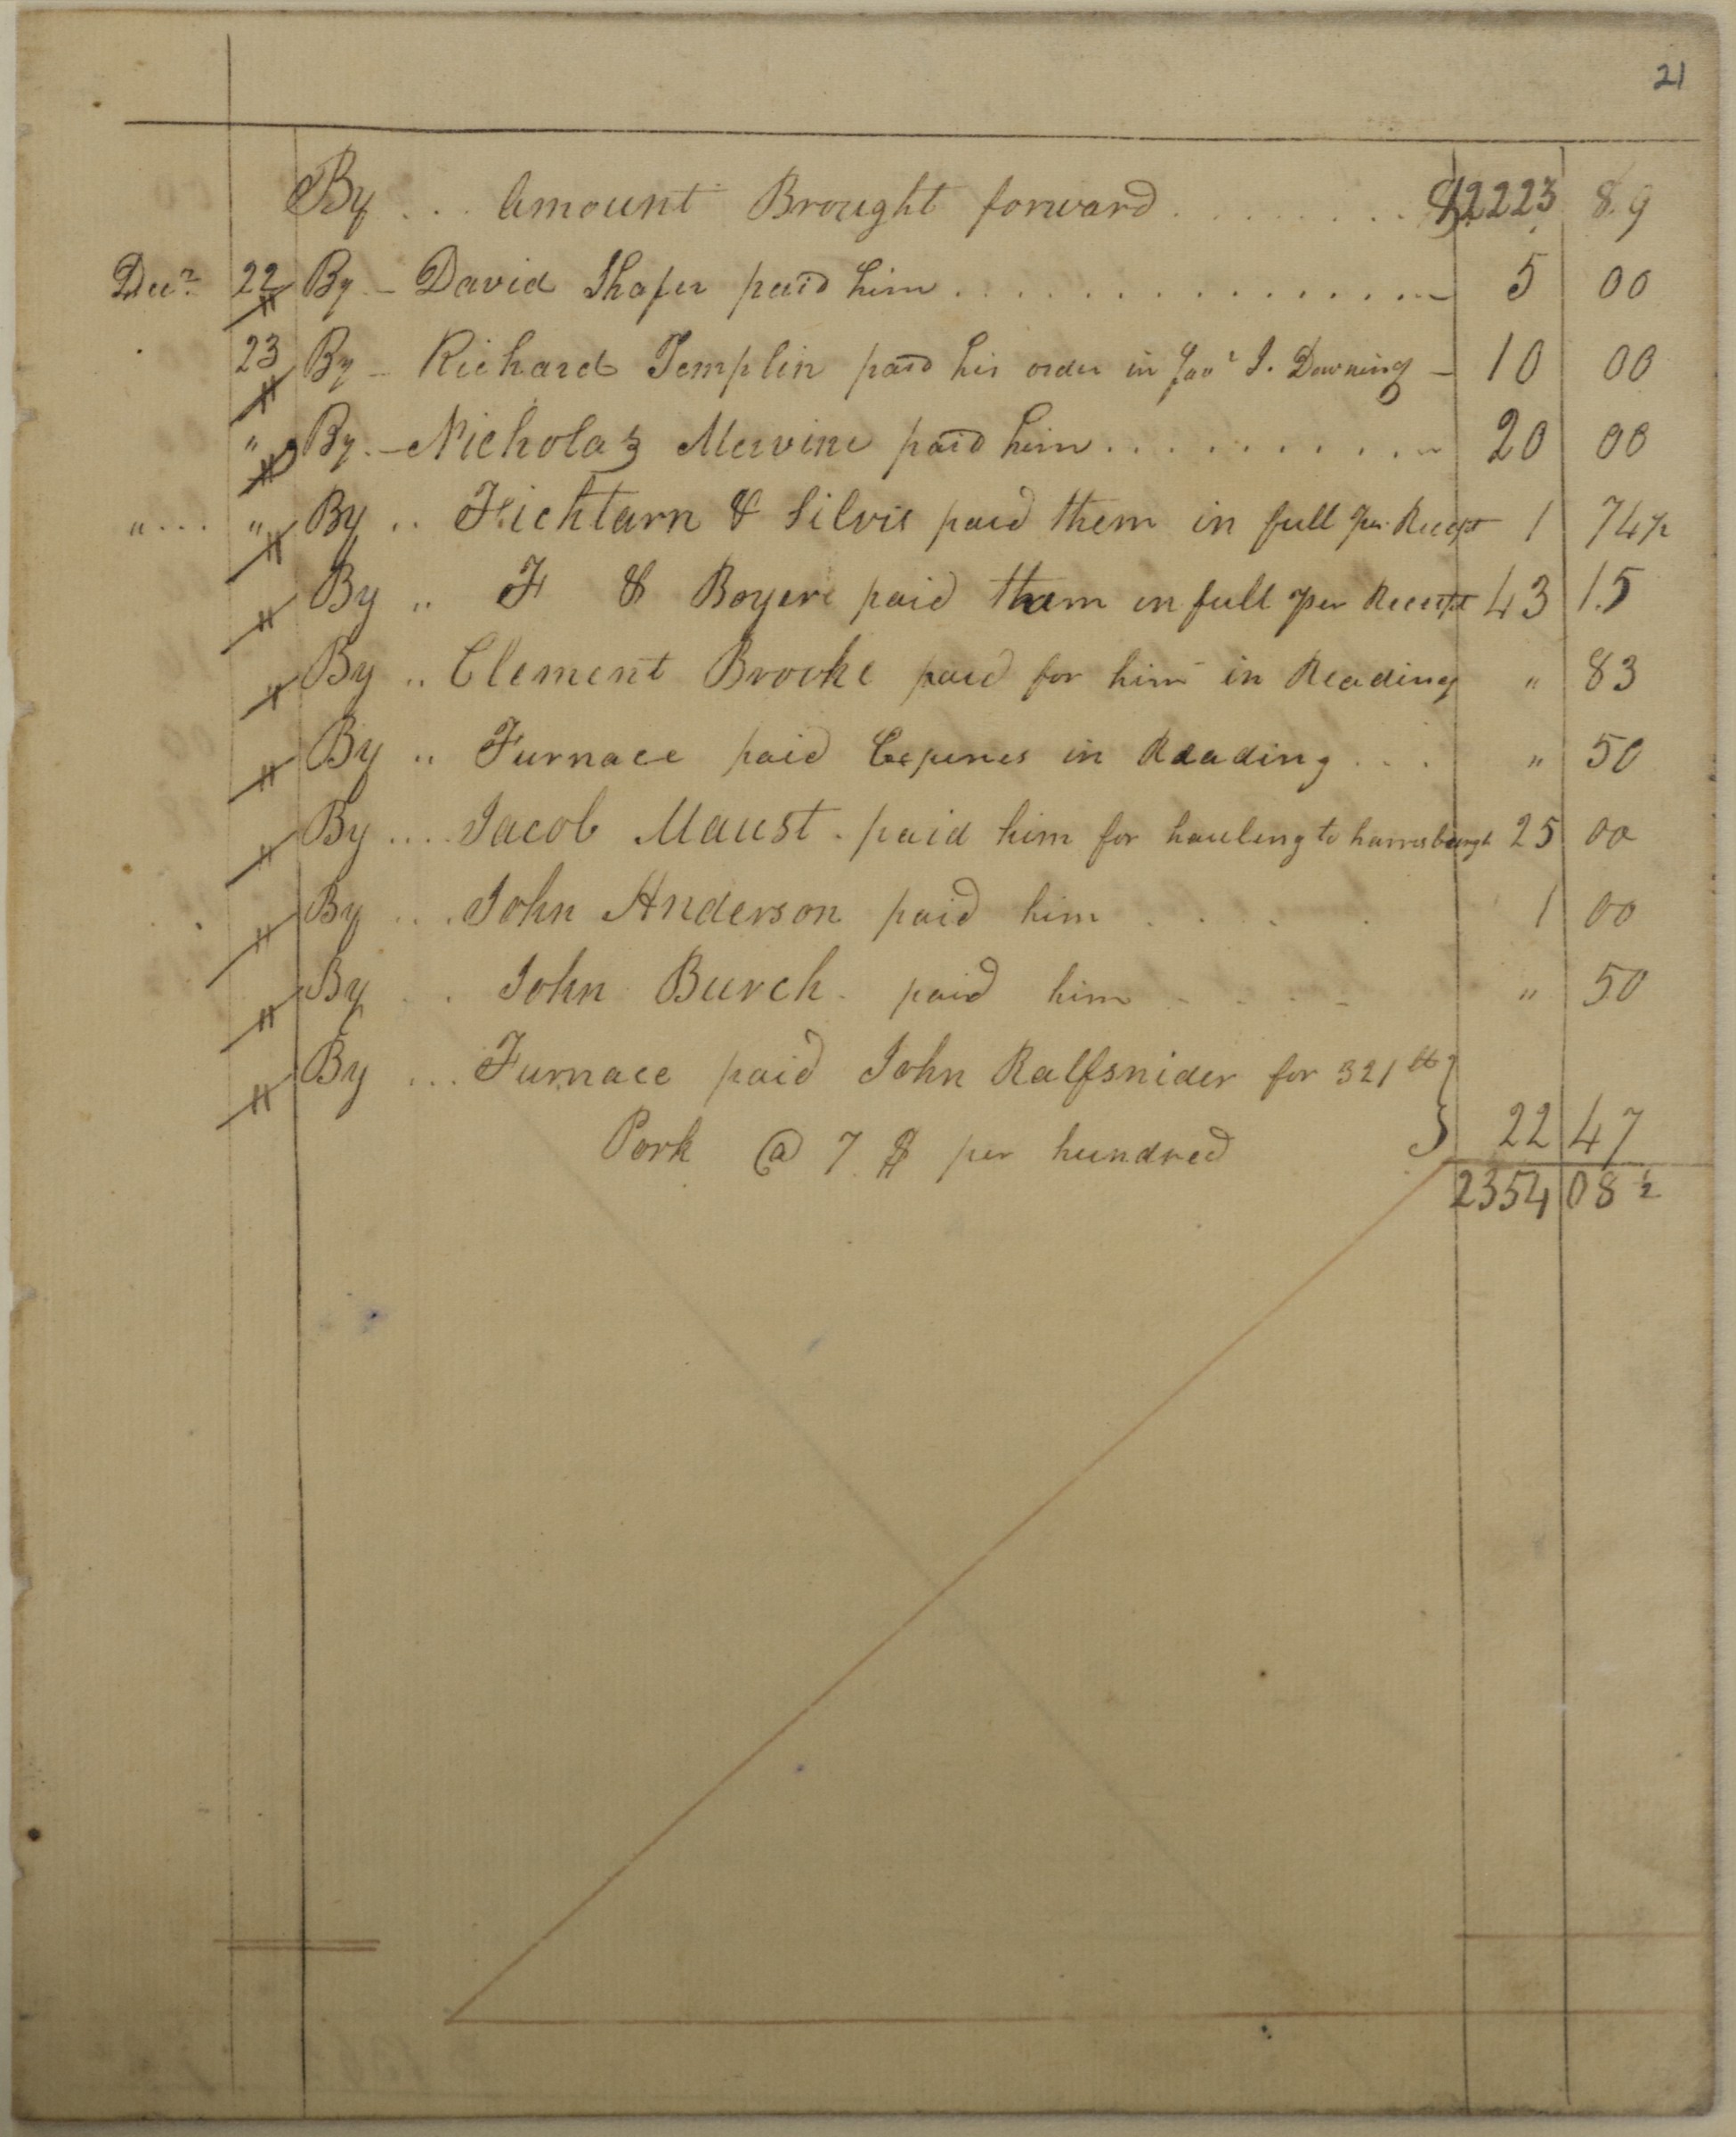 21
By ... Amount Brought forward ......... $2223 89
Decr 22 By - David Shafer paid him ............... 5 00
23 By - Richard Templin paid his order in favr I. Downing - 10 00
" By - Nicholas Mervine paid him .......... 20 00
" ... " By .. Fichtarn & Silvis paid them in full per Recept 1 74½
By .. F & Boyers paid them in full per Receipt 43 15
By .. Clement Brooke paid for him in Reading " 83
By .. Furnace paid Expenes in Reading ... " 50
By .... Jacob Maust . paid him for hauling to harrisburgh 25 00
By ... John Anderson paid him .... 1 00
By .. John Burch . paid him .... " 50
By ... Furnace paid John Ralfsnider for 321 lb }
Pork @ 7 $ per hundred } 22 47
2354 08½